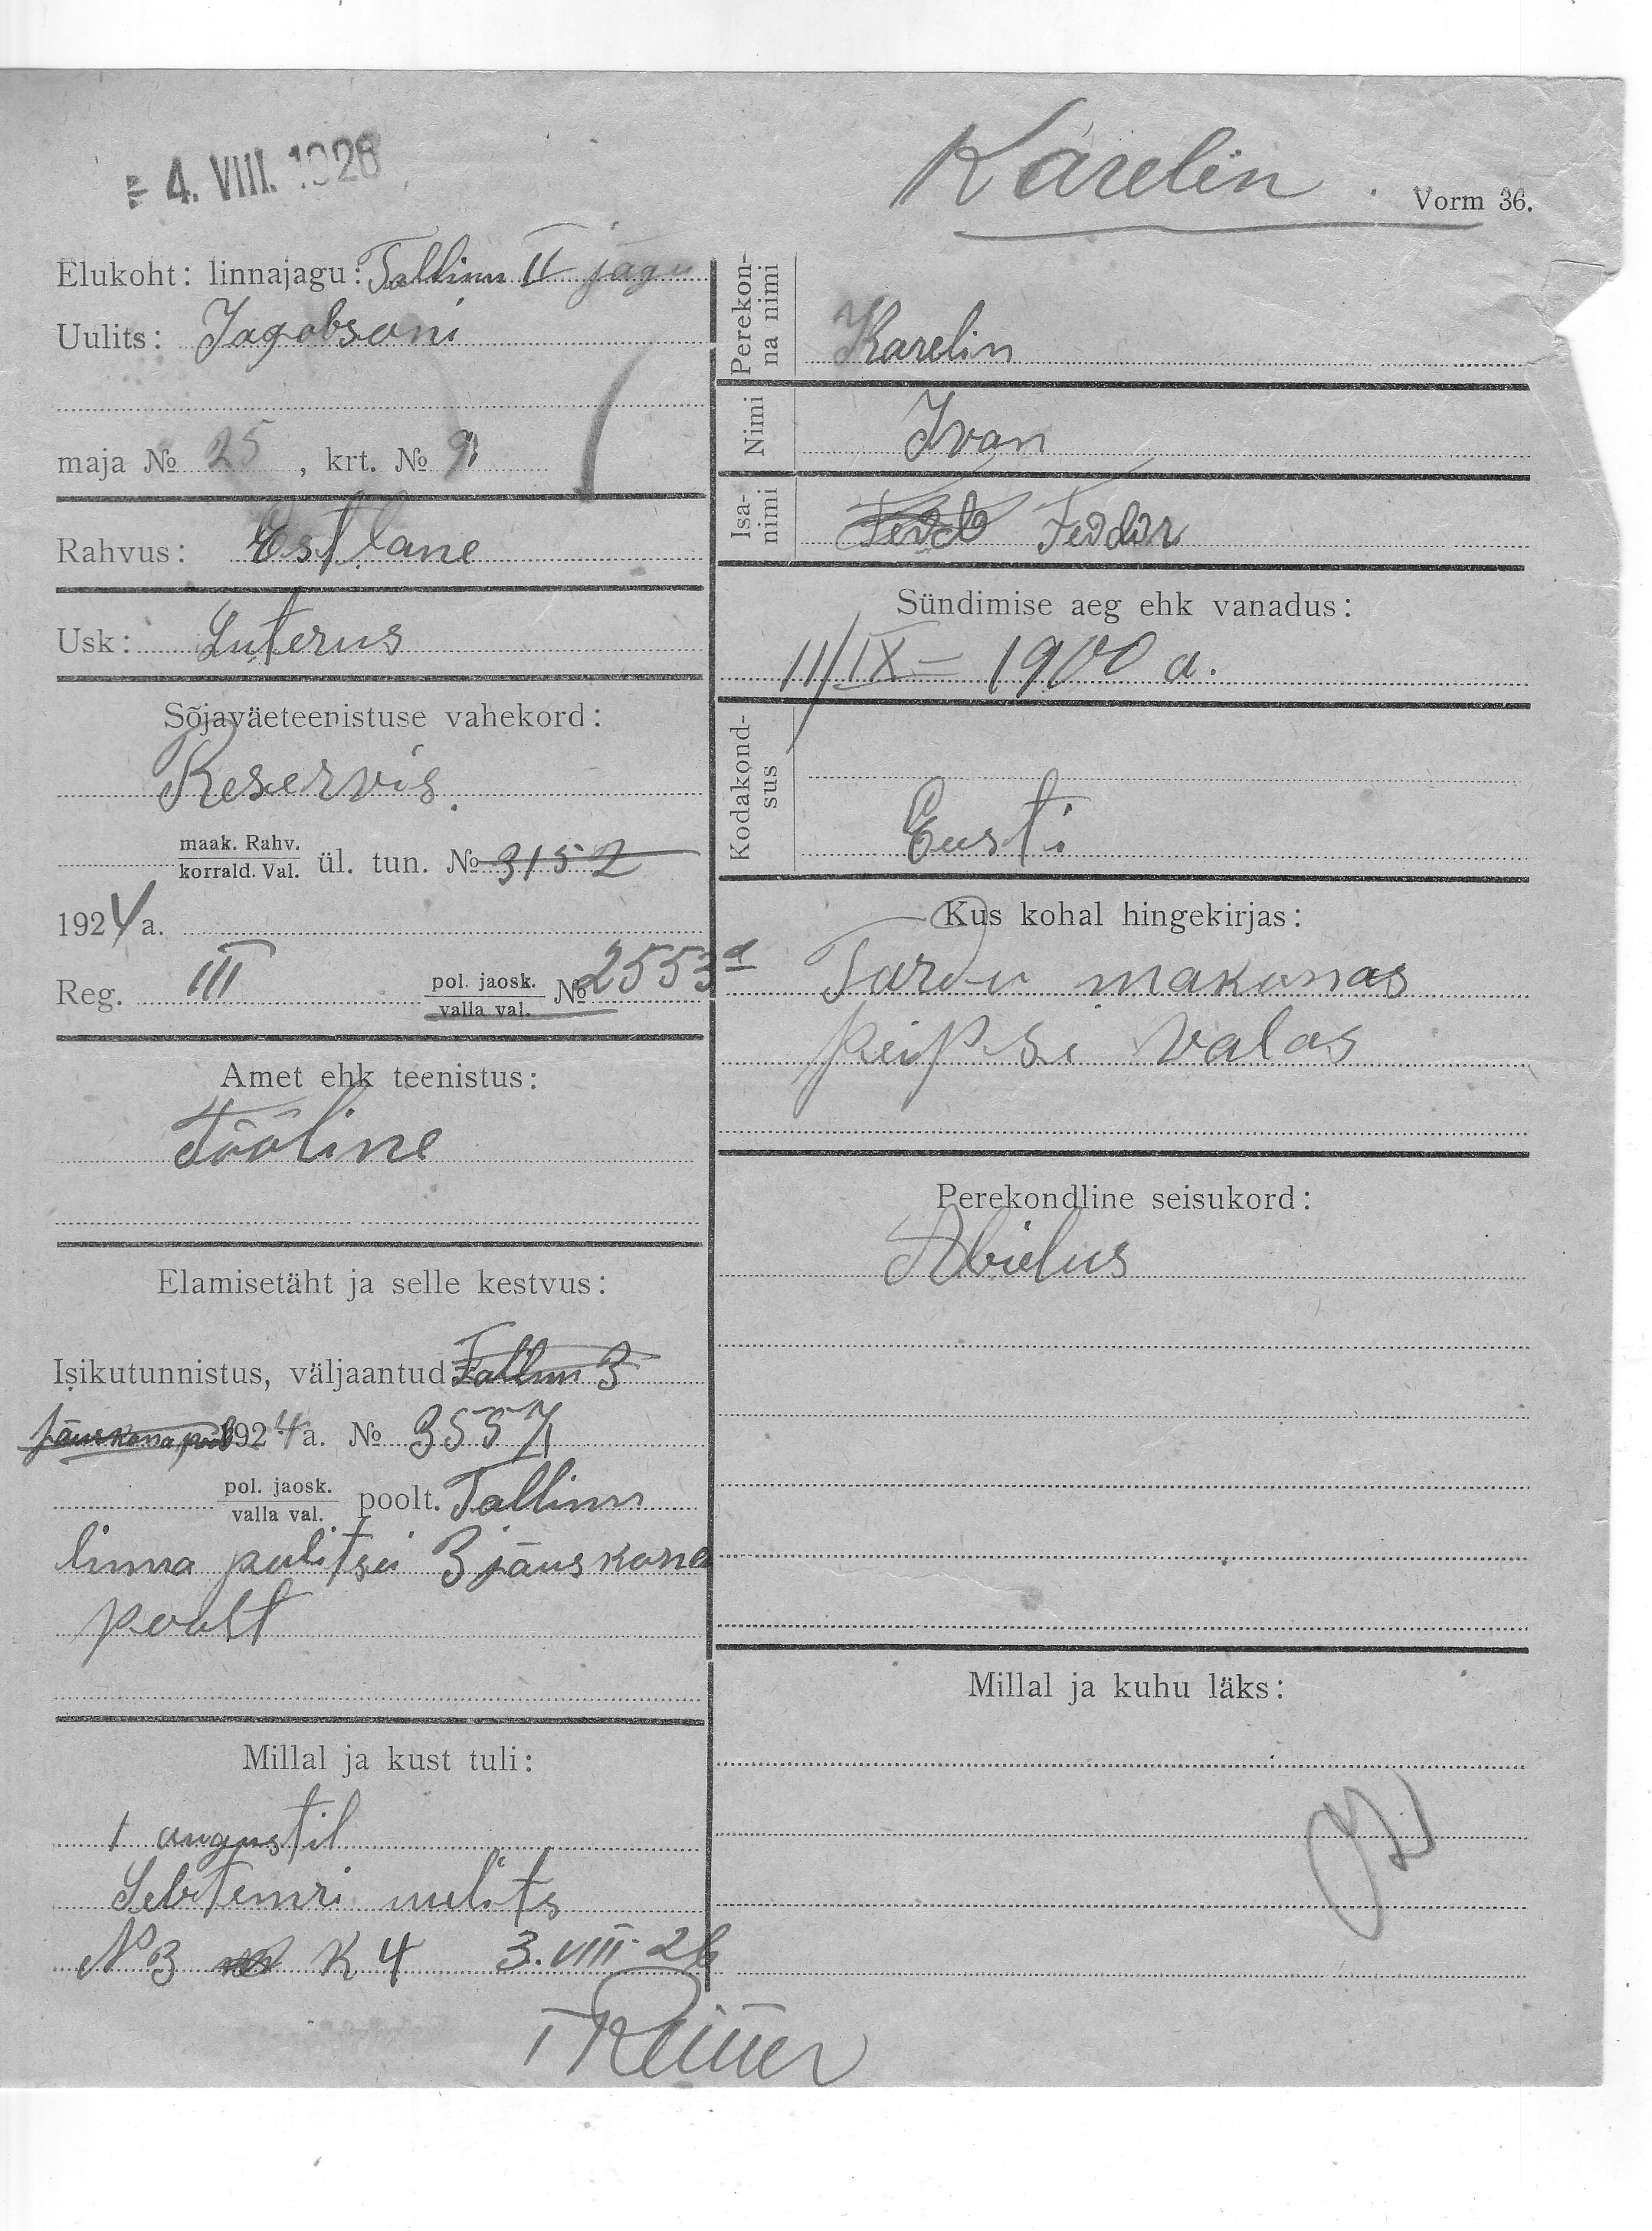 - 4. VIII. 1926
Karelin
Vorm 36.
Elukoht: linnajagu: Tallinn II jagu
Uulits: Jagobsoni
maja № 25, krt. № 9
Rahvus: Estlane
Usk: Luterus
Sõjaväeteenistuse vahekord:
Reservis.
maak. Rahv.
korrald. Val. ül. tun. № 3152
1924 a.
Reg. III pol. jaosk. № 2553a
valla val.
Amet ehk teenistus:
Tööline
Elamisetäht ja selle kestvus:
Isikutunnistus, väljaantud Tallinn 3
jauskona poolt 1924 a. № 3557
pol. jaosk.
valla val. poolt. Tallinn
linna politsei 3 jauskona
poolt
Millal ja kust tuli:
1 augustil
Sebtemri uulits
№ 3 K 4 3.VIII.26
Perekonna nimi
Karelin
Nimi
Ivan
Isanimi
Feodor
Sündimise aeg ehk vanadus:
11/IX – 1900 a.
Kodakondsus
Eesti
Kus kohal hingekirjas:
Tardu makonas
peipsi valas
Perekondline seisukord:
Abielus
Millal ja kuhu läks: